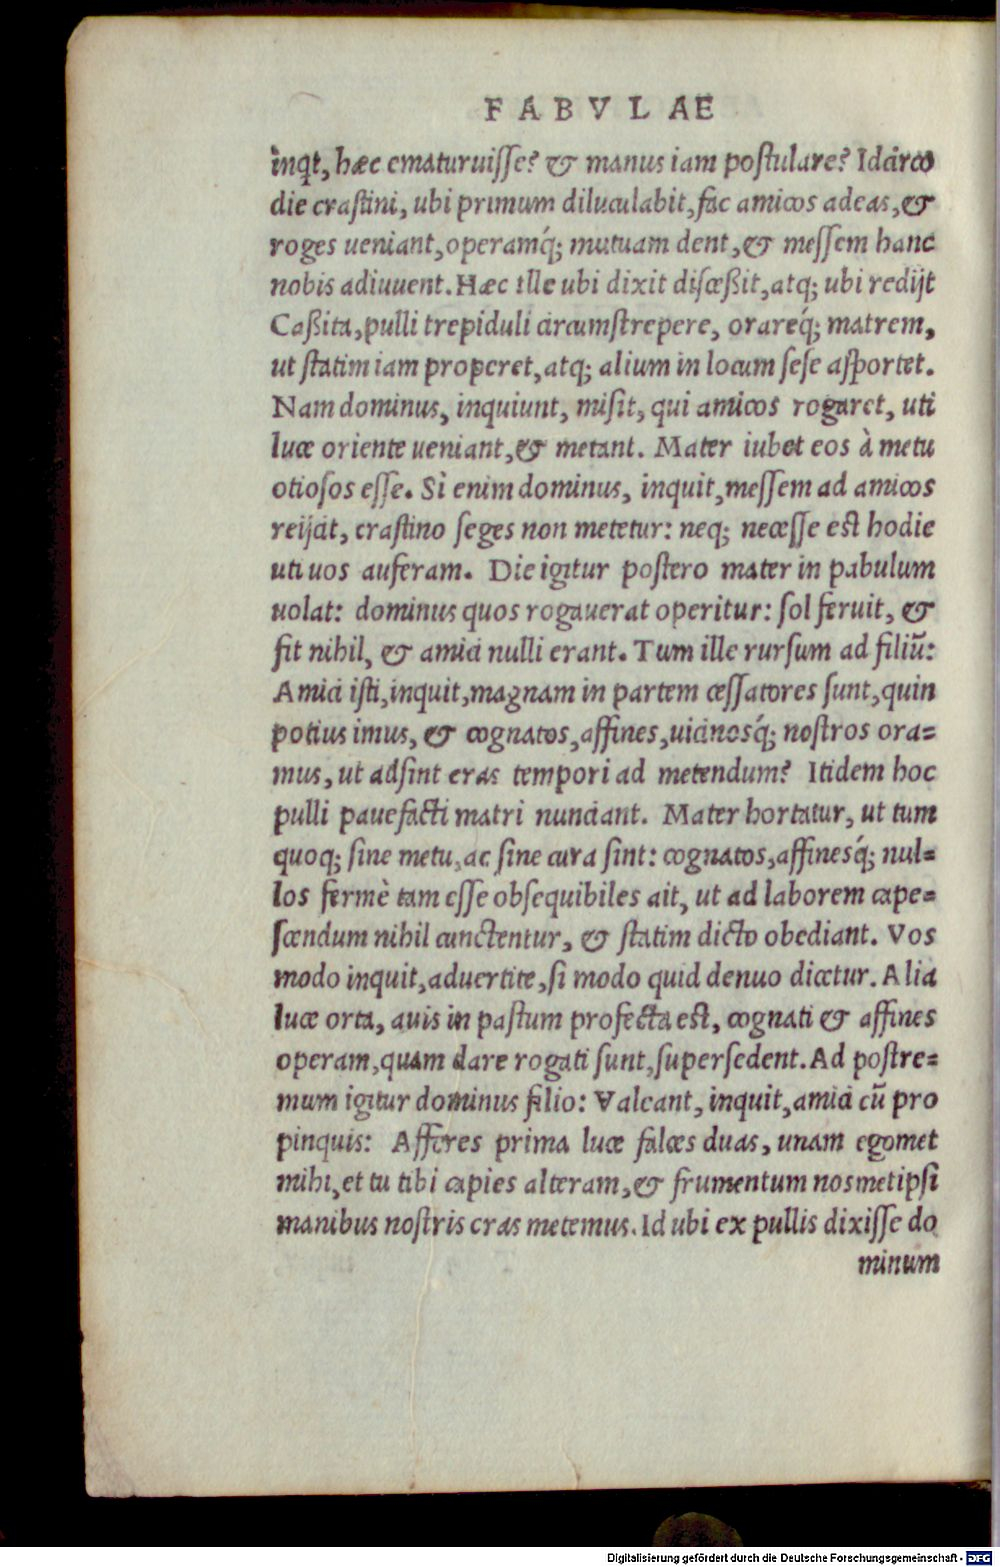 FABVLAE
inqt, hæc ematuruisse? & manus iam postulare? Idcirco
die crastini, ubi primum diluculabit, fac amicos adeas, &
roges ueniant, operamq́; mutuam dent, & messem hanc
nobis adiuuent. Hæc ille ubi dixit disceßit, atq; ubi redijt
Caßita, pulli trepiduli circumstrepere, orareq́; matrem,
ut statim iam properet, atq; alium in locum sese asportet.
Nam dominus, inquiunt, misit, qui amicos rogaret, uti
luce oriente ueniant, & metant. Mater iubet eos à metu
otiosos esse. Si enim dominus, inquit, messem ad amicos
reijcit, crastino seges non metetur: neq; necesse est hodie
uti uos auferam. Die igitur postero mater in pabulum
uolat: dominus quos rogauerat operitur: sol feruit, &
fit nihil, & amici nulli erant. Tum ille rursum ad filiũ:
Amici isti, inquit, magnam in partem cessatores sunt, quin
potius imus, & cognatos, affines, uicinosq́; nostros ora=
mus, ut adsint cras tempori ad metendum? Itidem hoc
pulli pauefacti matri nunciant. Mater hortatur, ut tum
quoq; sine metu, ac sine cura sint: cognatos, affinesq́; nul=
los fermè tam esse obsequibiles ait, ut ad laborem cape=
scendum nihil cunctentur, & statim dicto obediant. Vos
modo inquit, aduertite, si modo quid denuo dicetur. Alia
luce orta, auis in pastum profecta est, cognati & affines
operam, quam dare rogati sunt, supersedent. Ad postre=
mum igitur dominus filio: Valeant, inquit, amici cũ pro
pinquis: Afferes prima luce falces duas, unam egomet
mihi, et tu tibi capies alteram, & frumentum nosmetipsi
manibus nostris cras metemus. Id ubi ex pullis dixisse do
minum
Digitalisierung gefördert durch die Deutsche Forschungsgemeinschaft - DFG